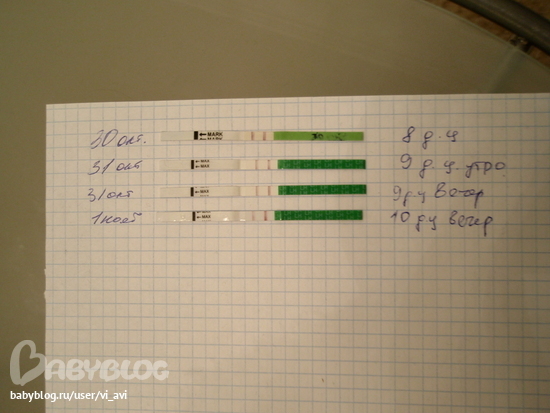 30 окт. MARK 30 8 д.ц
31 окт MAX 9 д.ц. утро
31 окт MAX 9 д ц вечер
1 нояб MAX 10 д ц вечер
BABYBLOG
babyblog.ru/user/vi_avi